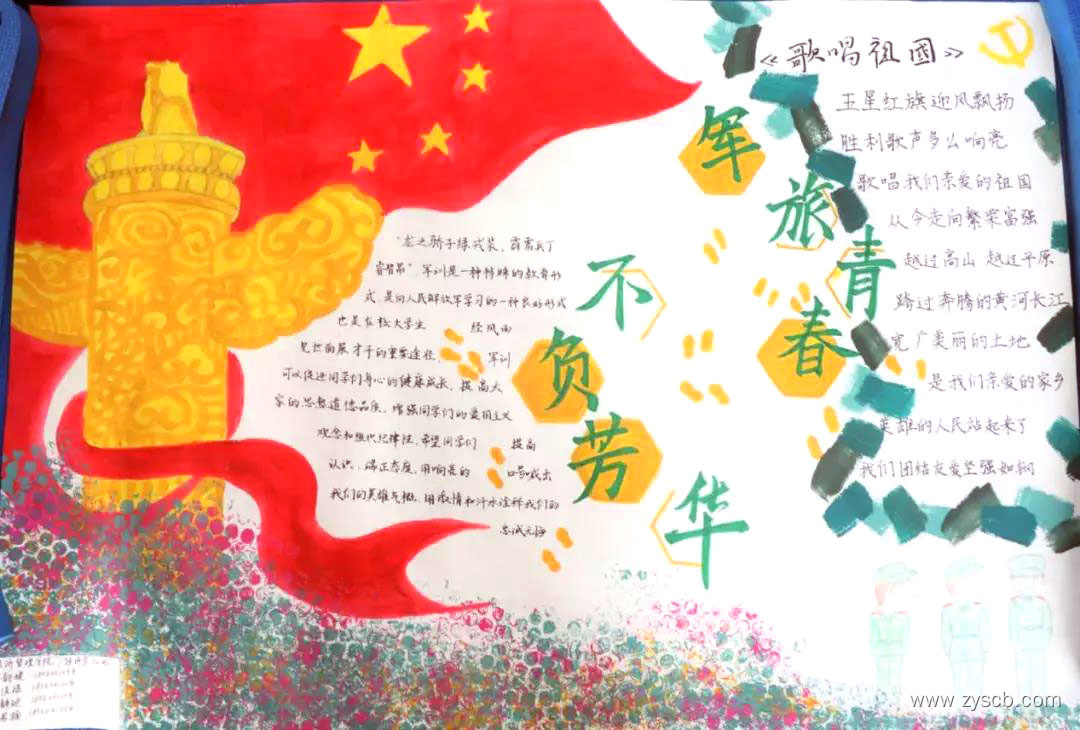 《歌唱祖国》
五星红旗迎风飘扬
胜利歌声多么响亮
歌唱我们亲爱的祖国
从今走向繁荣富强
越过高山 越过平原
跨过奔腾的黄河长江
宽广美丽的土地
是我们亲爱的家乡
英雄的人民站起来了
我们团结友爱坚强如钢
军旅青春
不负芳华
"龙之骄子绿戎装，霹雳兵丁
睿智昂"，军训是一种特殊的教育形
式，是向人民解放军学习的一种良好形式
也是在校大学生 经风雨
见世面展才干的重要途径， 军训
可以促进同学们身心的健康成长，提高大
家的思想道德品质，增强同学们的爱国主义
观念和组织纪律性，希望同学们 提高
认识，端正态度，用响亮的 口号喊出
我们的英雄气概，用激情和汗水诠释我们的
忠诚无悔
www.zyscb.com